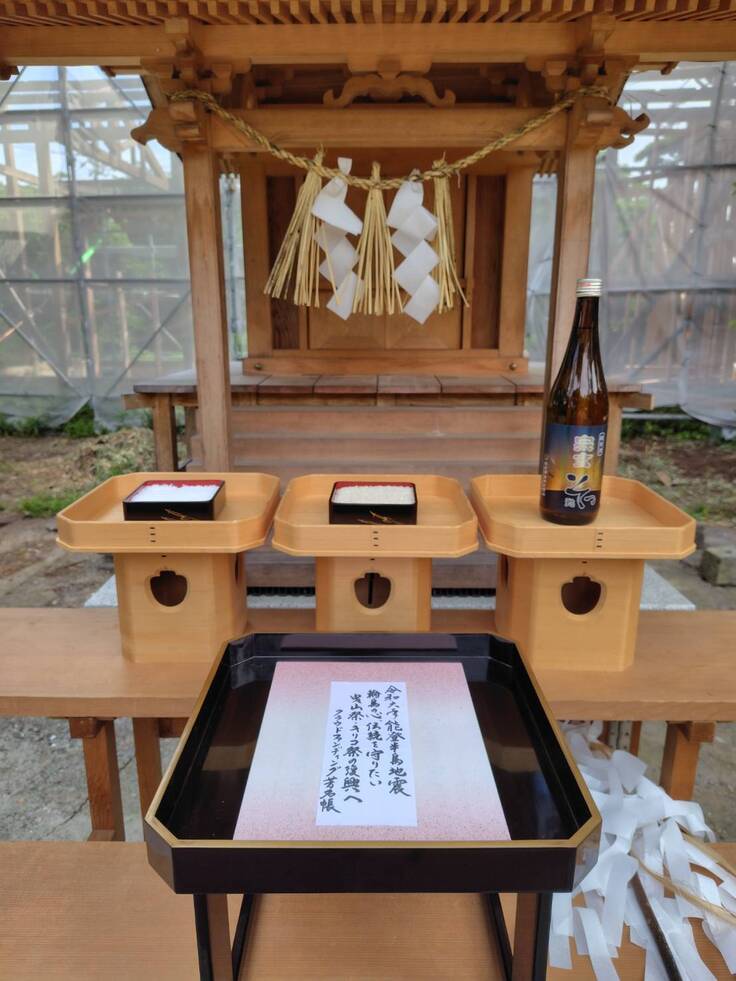 令和六年能登半島地震
輪島の心、伝統を守りたい
曳山祭・キリコ祭の復興へ
クラウドファンディング芳名帳
宗玄